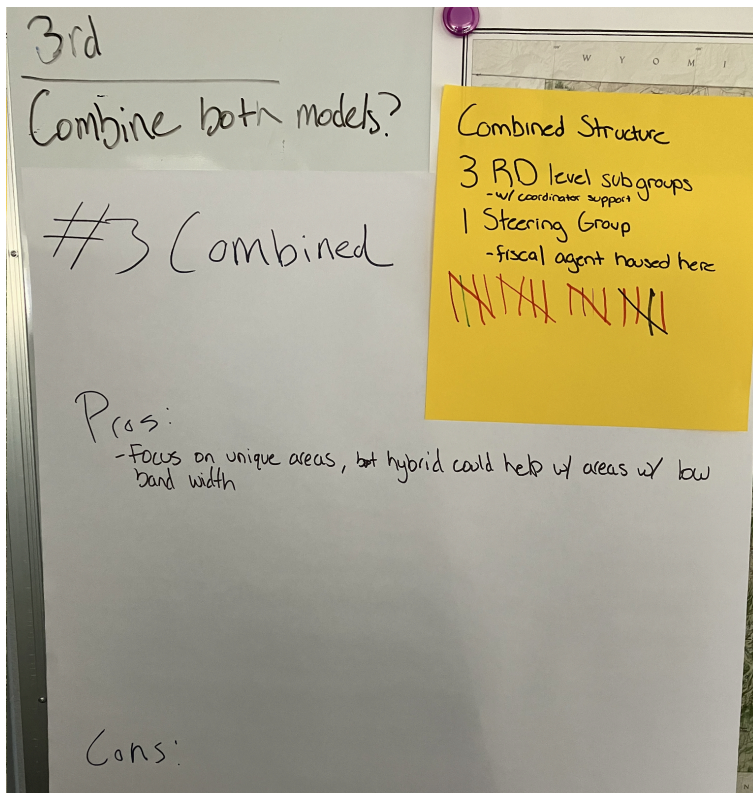 3rd
Combine both models?
W Y O M I
Combined Structure
3 RD level subgroups
-w/ coordinator support
1 Steering Group
-fiscal agent housed here
#3 Combined
Pros:
-Focus on unique areas, but hybrid could help w/ areas w/ low
band width
Cons: